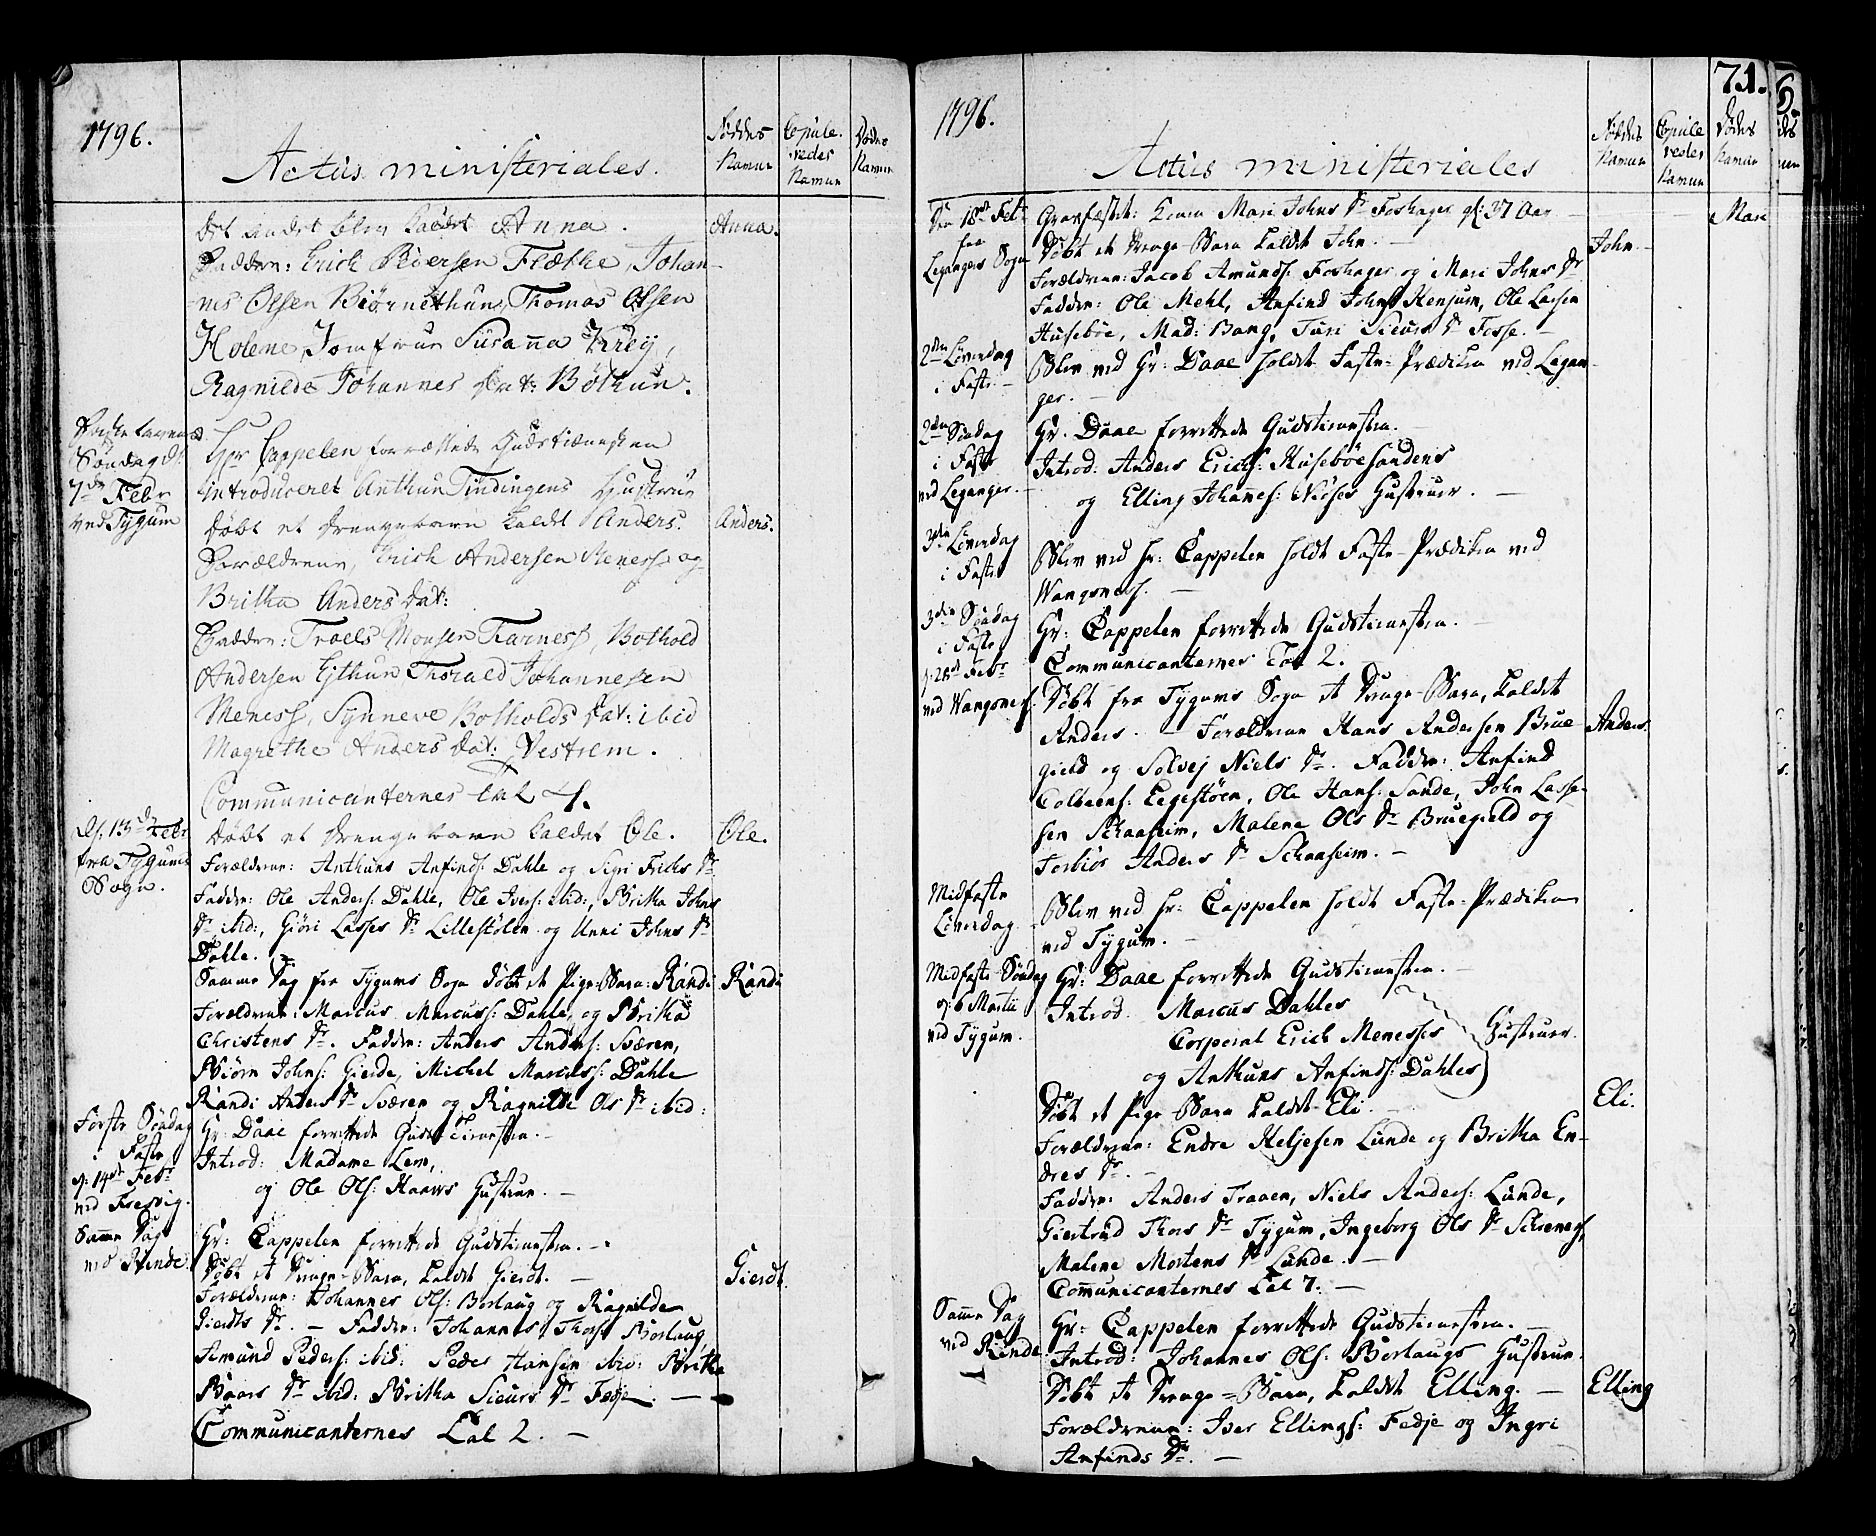 1796.
Actus ministeriales.
Föddes Namne
Copule-redes Namne
Dødes Namne
Det andet blev kaldet Anna.
Anna.
Faddere: Erich Pedersen Flæthe, Johan-
nes Olsen Biørnethun, Thomas Olsen
Holene, Jomfrue Susanna Krey,
Ragnilde Johannes Dat: Bøthun.
Søndag d:
7de Febr
ved Tygum
Hr Cappelen forrættede Gudstienesten
introduceret Anthun Tindingens Hustrue
døbt et Drengebarn kaldt Anders.
Anders.
Forældrene, Erich Andersen Meness og
Britha Anders Dat:
Faddere: Troels Monsen Tiarness, Bothold
Andersen Eithun, Thorald Johannesen
Meness, Synneve Botholds Dat: ibid
Magrethe Anders Dat: Vestrem.
Communicanternes Tal 4.
d: 13de Febr
fra Tygums
Sogn.
Døbt et Drengebarn kaldet Ole.
Ole.
Forældrene: Anthuns Anfinds: Dahle og Sigri Erichs Dr
Faddere: Ole Anders: Dahle, Ole Ivers: ibid:, Britha Johns
Dr ibid:, Giøri Lasses Dr Lillestølen og Unni Johns Dr
Dahle.
Samme Dag fra Tygums Sogn døbt et Pige-Barn: Randi
Randi
Forældrene: Marcus Marcuss: Dahle, og Britha
Christens Dr. Faddere: Anders Anders: Sværen,
Biørn Johns: Gierde, Michel Marcuss: Dahle
Randi Anders Dr Sværen og Ragnilde Ols Dr ibid:
Første Søndag
i Faste
d: 14de Febr
ved Fresvig.
Hr: Daae forrettede Gudstienesten.
Introd: Madame Lem,
og Ole Ols: Haaves Hustrue.
Samme Dag
ved Rinde
Hr: Cappelen forrettede Gudstienesten.
Døbt et Drenge-Barn, kaldet Gierdt.
Gierdt
Forældrene: Johannes Ols: Borlaug og Ragnilde
Gierdts Dr. - Faddere: Johannes Thors: Borlaug
Amund Peders: ibid: Peder Hansen ibid: Britha
Baars Dr ibid: Britha Siurs Dr Fedje.
Communicanternes Tal 2.
1796.
71.
Actus ministeriales
Föddes Namne
Copule redes Namne
Dødes Namne
Den 18de Feb:
fra
Legangers Sogn
Gravfæstet: Kone Mari Johns Dr Foshager gl: 37 Aar
Mari
Døbt et Drenge-Barn kaldet John.
John
Forældrene: Jacob Amunds: Foshager og Mari Johns Dr
Faddere: Ole Mehl, Anfind Johns: Henjum, Ole Larsen
Husebøe, Mad: Bang, Turi Siurs Dr Fosse.
2den Løverdag
i Faste
Blev ved Hr: Daae holdt Faste-Prædiken ved Legan-
ger.
2den Søndag
i Faste
ved Leganger.
Hr. Daae forrettede Gudstienesten.
Introd: Anders Erichs: Husebøesandens
og Elling Johanes: Niøses Hustruer.
3die Løverdag
i Faste
Blev ved Hr: Cappelen holdt Faste-Prædiken ved
Wangsness.
3die Søndag
i Faste
d: 28de Febr
ved Wangsness.
Hr: Cappelen forrettede Gudstienesten.
Communicanternes Tal 2.
Døbt fra Tygums Sogn et Drenge-Barn, kaldet
Anders. - Forældrene Hans Andersen Brue-
Anders.
gield og Solvej Niels Dr. Faddere: Anfind
Colbeens: Legestøen, Ole Hans: Sande, John Lasse-
sen Schaasheim, Malene Ols Dr Bruegield og
Torbiør Anders Dr Schaasheim.
Midfaste
Løverdag
Blev ved Hr: Cappelen holdt Faste-Prædiken
ved Tygum.
Midfaste Søndag
d: 6 Martii
ved Tygum.
Hr: Daae forrettede Gudstienesten.
Introd. Marcus Dahles
Corporal Erich Menesses Hustruer.
og Anthuns Anfinds: Dahles
Døbt et Pige-Barn kaldet Eli.
Eli.
Forældrene: Endre Heljesen Lunde og Britha En-
dres Dr.
Faddere: Anders Traaen, Niels Anders: Lunde,
Giertrud Thors Dr Tygum, Ingeborg Ols Dr Schieness,
Malene Mortens Dr Lunde.
Communicanternes Tal 7.
Samme Dag
ved Rinde
Hr: Cappelen forrettede Gudstienesten.
Introd: Johannes Ols: Borlaugs Hustrue.
Døbt et Drenge-Barn, kaldet Elling.
Elling
Forældrene: Iver Ellings: Fedje og Ingri
Anfinds Dr.